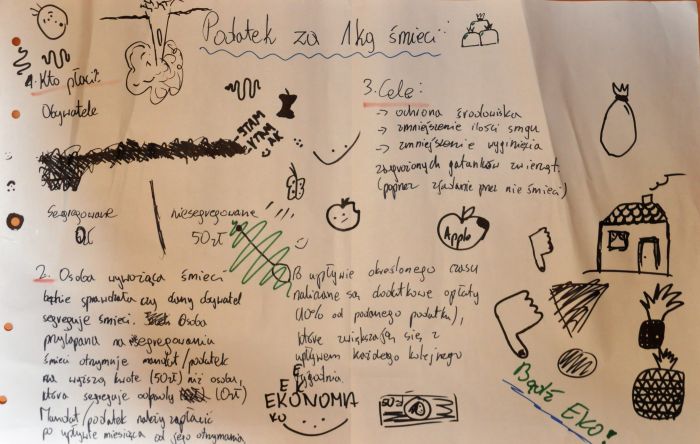 Podatek za 1kg śmieci:
1. Kto płaci?:
Obywatele
STAM
VTAM
AK
segregowane
niesegregowane
0zł
50zł
2. Osoba wywożąca śmieci
będzie sprawdzała czy dany obywatel
segreguje śmieci. Osoba
przyłapana na niesegregowaniu
śmieci otrzymuje mandat/podatek
na wyższą kwotę (50zł) niż osoba,
która segreguje odpady (0zł)
Mandat/podatek należy zapłacić
po upływie miesiąca od jego otrzymania.
3. Cele:
→ ochrona środowiska
→ zmniejszenie ilości smogu
→ zmniejszenie wyginięcia
zagrożonych gatunków zwierząt.
(poprzez zjadanie przez nie śmieci)
Apple
B upływie określonego czasu
naliczane są dodatkowe opłaty
(10% od podanego podatku),
które zwiększają się z
upływem każdego kolejnego
tygodnia.
EKONOMA
KO
50 zł
Bądź EKO!